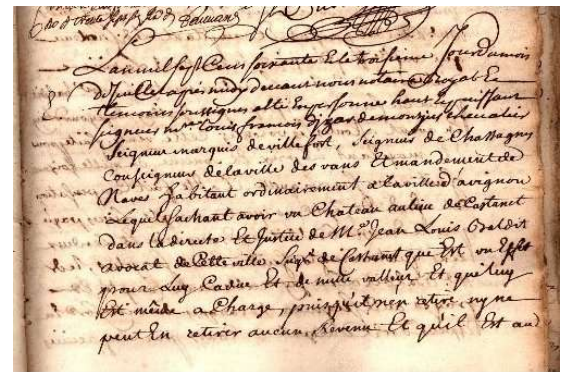 L'an mil sept Cens soixante Et le troisieme Jour du mois
de Juillet apres midy devant nous notaire Royal Et
temoins soussignes a été En personne haut Et puissant
seigneur mre Louis francois de monteils chevalier
Seigneur marquis de villefort, Seigneur de Chassagnes
Conseigneur de la ville des vans Et mandement de
Naves habitant ordinairement a la ville d'avignon
Lequel sachant avoir un Chateau antique de Castanet
dans la directe Et Justice de Me Jean Louis Baldit
avocat de Cette ville Sgr de que Est un Effet
pour Luy Caduc Et de nulle valleur Et qui luy
Est même a Charge, puisqu'il n'en retire, ny ne
peut En retirer aucun Revenu Et qu'il Est au